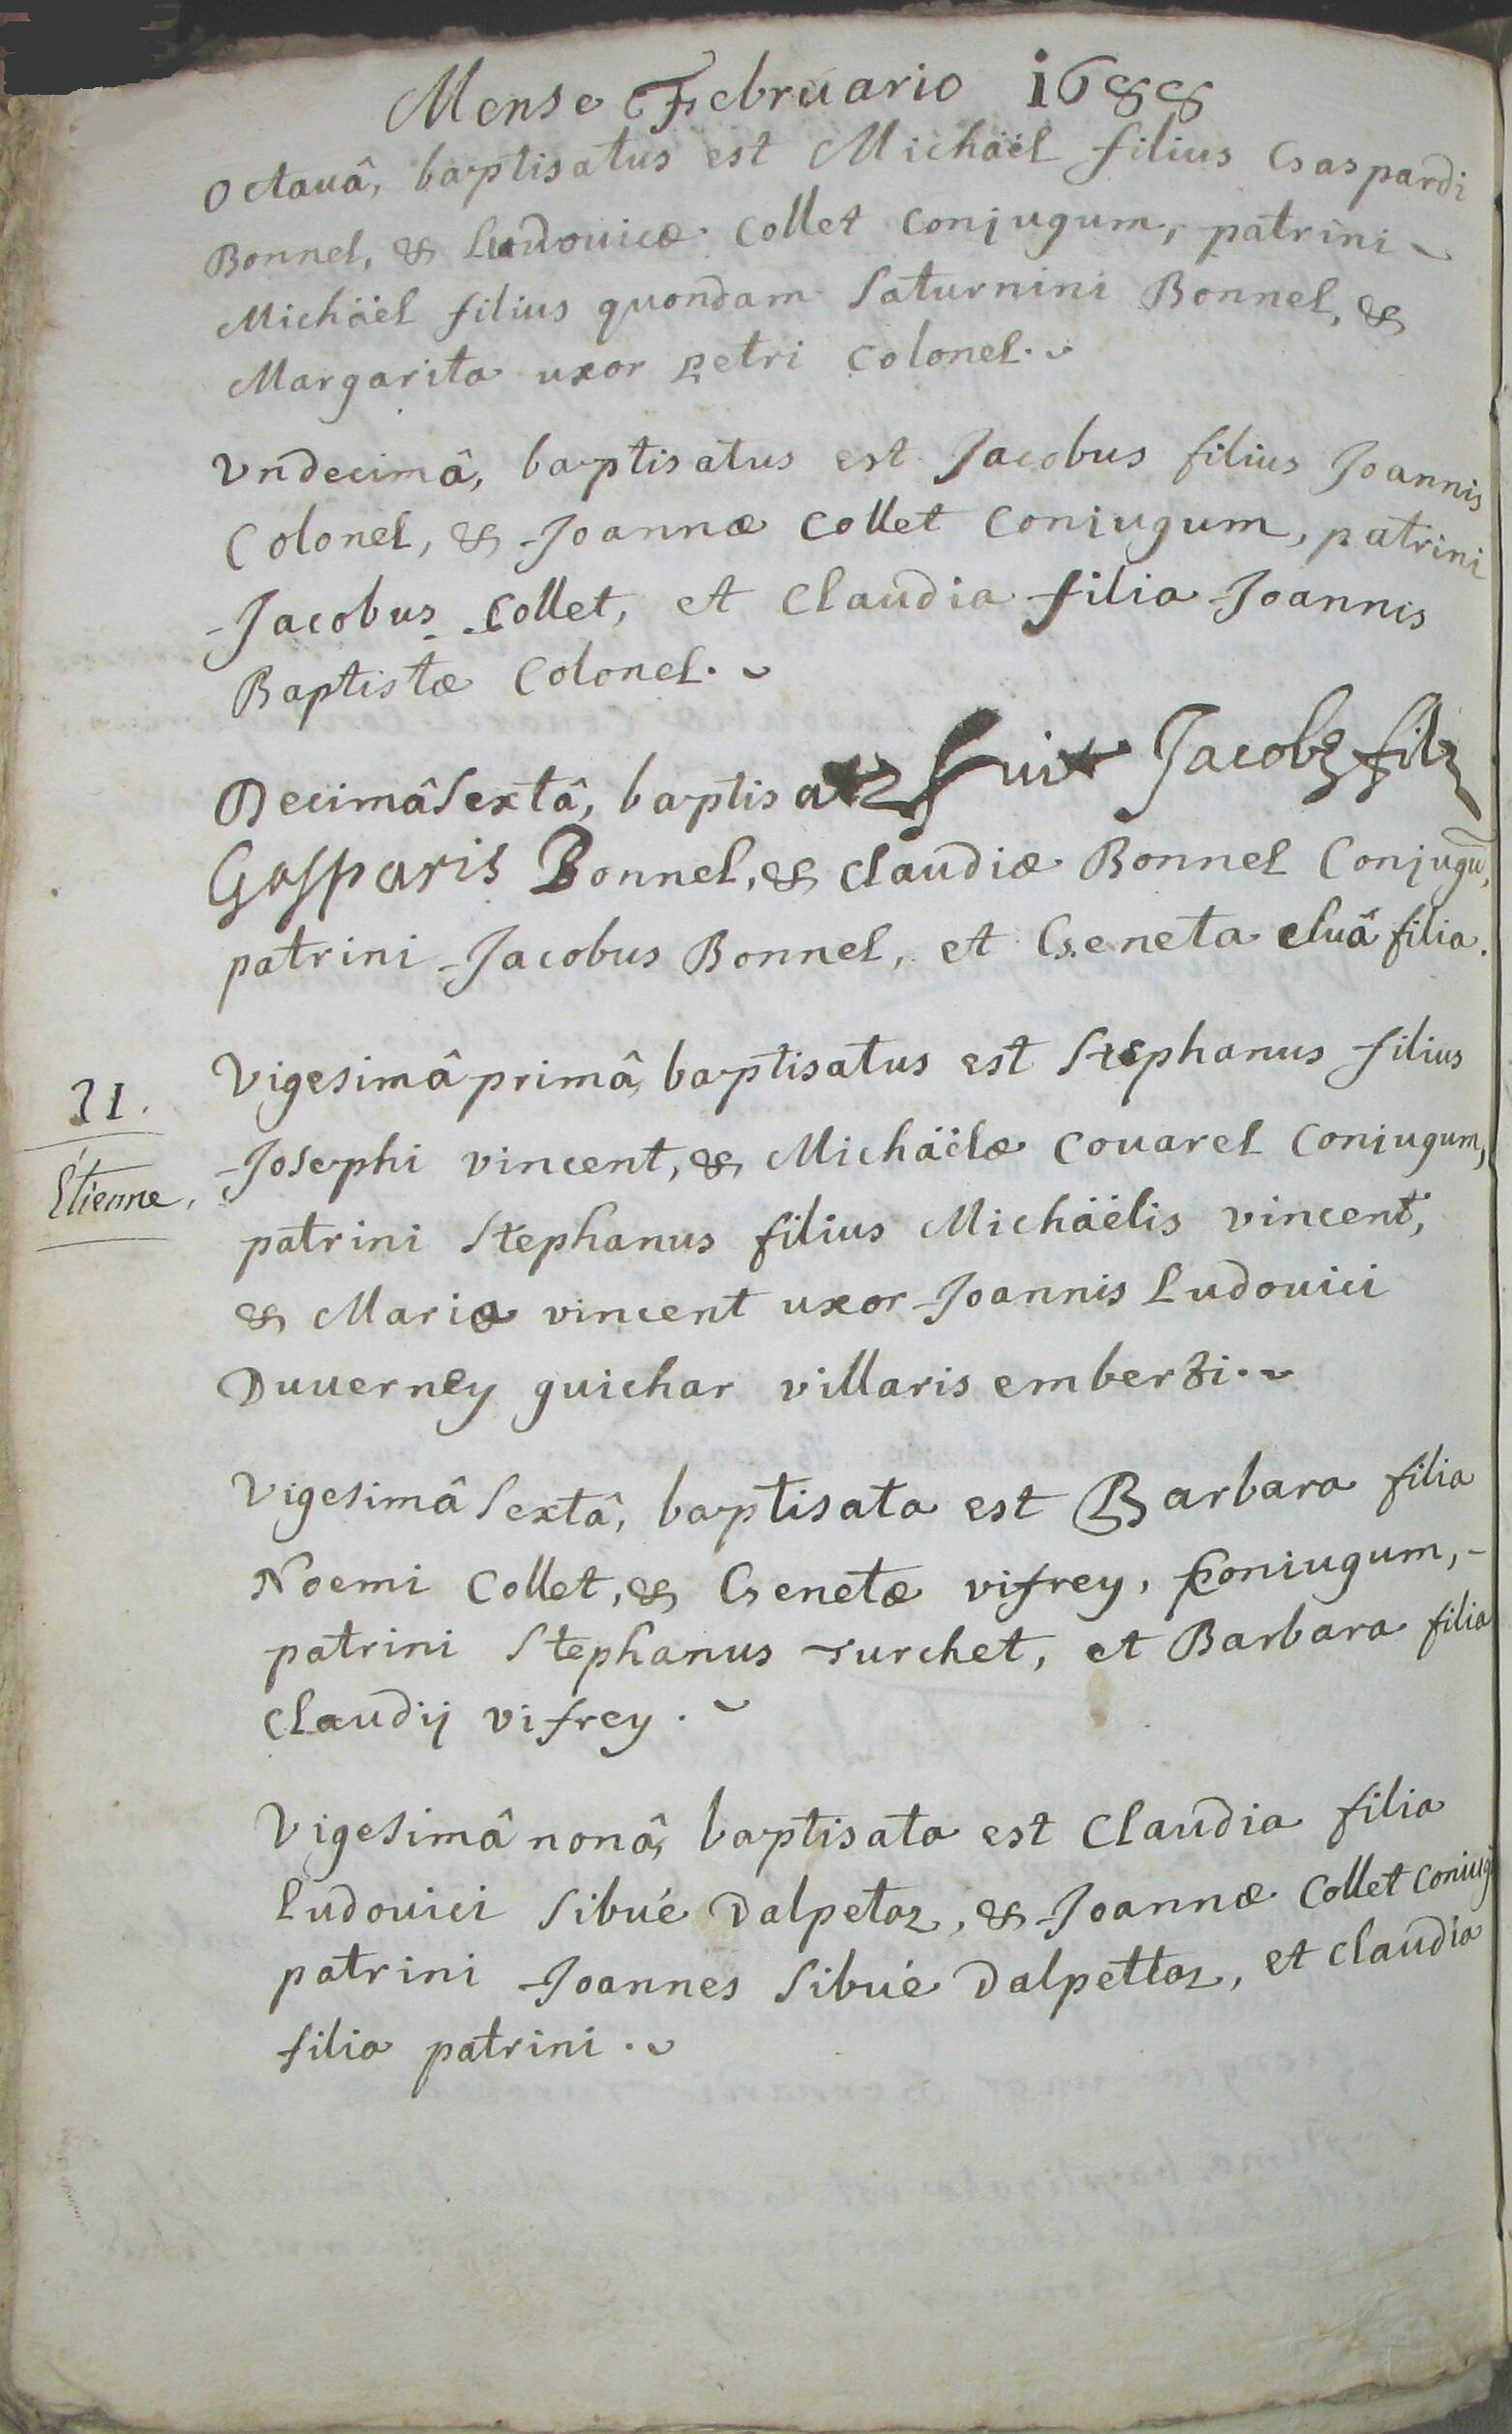 Mense Februario 1688
Octauâ, baptisatus est Michäel filius Gaspardi
Bonnel, & Ludouicæ Collet Conjugum, patrini
Michäel filius quondam Saturnini Bonnel, &
Margarita uxor petri Colonel.
Vndecimâ, baptisatus est Jacobus filius Joannis
Colonel, & Joannæ Collet Coniugum, patrini
Jacobus Collet, et Claudia filia Joannis
Baptistæ Colonel.
Decimâ Sextâ, baptisatꝰ fuit Jacobꝰ filꝰ
Gasparis Bonnel, & Claudiæ Bonnel Conjugũ,
patrini Jacobus Bonnel, et Geneta filia.
21.
Étienne.
Vigesimâ primâ, baptisatus est Stephanus filius
Josephi vincent, & Michäelæ Couarel Coniugum,
patrini Stephanus filius Michäelis vincent,
& Maria vincent uxor Joannis Ludouici
Duuerney guichar villaris emberti.
Vigesimâ Sextâ, baptisata est Barbara filia
Noemi Collet, & Genetæ vifrey, Coniugum,
patrini Stephanus Turchet, et Barbara filia
Claudij vifrey.
Vigesimâ nonâ, baptisata est Claudia filia
Ludouici Sibué Dalpetaz, & Joannæ Collet Coniug
patrini Joannes Sibué Dalpettaz, et Claudia
filia patrini.